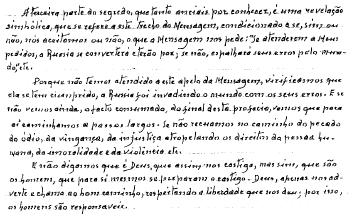 A terceira parte do segredo, que tanto ansiais por conhecer, é uma revelação
simbólica, que se refere a este trecho da Mensagem, condicionado a se, sim, ou
não, nós aceitamos ou não, o que a Mensagem nos pede: "Se atenderem a Meus
pedidos, a Russia se converterá e terão paz; se não, espalhará seus erros pelo mun-
do," etc.
Porque não temos atendido a este apelo da Mensagem, verificamos que
ela se tem cumprido, a Russia foi invadindo o mundo com os seus erros. E se
não vemos ainda, o facto consumado, do final desta profecia, vemos que para
aí caminhamos a passos largos. Se não recuamos no caminho do pecado
do ódio, da vingança, da injustiça atropelando os direitos da pessoa hu-
mana, da imoralidade e da violência etc.
E não digamos que é Deus, que assim nos castiga, mas sim, que são
os homens, que para si mesmos se preparam o castigo. Deus, apenas nos ad-
verte e chama ao bom caminho, respeitando a liberdade que nos deu; por isso,
os homens são responsaveis.